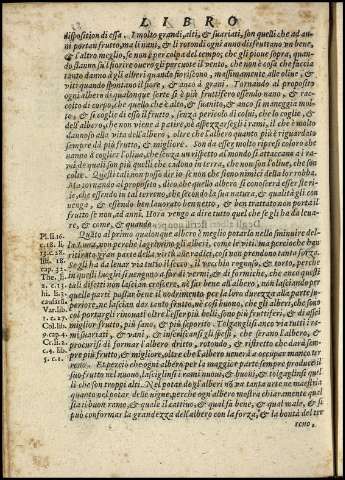 LIBRO
disposition di essa. I molto grandi, alti, & suariati, son quelli che ad an-
ni portan frutto, ma li nani, & li rotondi ogni anno disfruttano un bene,
& l'altro meglio, se non è per colpa del tempo; che gli pioue sopra, quan-
do stanno sul fiorire ouero gli percuote il vento, che non è cosa che faccia
tanto danno à gli alberi quando fioriscono, massimamente alle oliue, &
viti quando spontano il fiore, & anco à grani. Tornando al proposito
ogni albero di qualunque sorte si è più fruttifero essendo nano, & rac-
colto di corpo, che quello che è alto, & suanito, & anco si maneggia mol-
to, & si coglie da esso il frutto, senza pericolo di colui, che lo coglie, &
dell'albero, che non viene à patire, nè spezzasegli i rami, il che è molto
dannoso alla vita dell'albero, oltre che l'albero quanto più è riguardato
sempre dà più frutto, & migliore. Son da esser molto ripresi coloro che
vanno à cogliere l'oliue, che senza un rispetto al mondo si attaccano a i ra-
mi de quali son più quelli che cadono in terra, che non son l'oliue, che son
colte. Questi tali non posso dir io se non che sono nimici della lor robba.
Ma tornando al proposito, dico che quello albero si conoscerà esser ste-
rile, che essendo in tal terreno, che secondo la sua natura, & qualità gli con
uenga, & essendo ben lauorato ben netto, & ben trattato non porta il
frutto se non, ad anni. Hora vengo a dire tutto quel che se gli ha da leua-
re, & come, & quando.
Quãto al primo qualonque albero è meglio potarlo nello sminuire del-
la Luna, non perche lagrimino gli alberi, come le viti: ma percioche hauẽ
ritirato gran parte della virtù alle radici, così non prendono tanta forza.
Se gli ha da leuar via tutto il secco, il vecchio rugoso, & torto, perche
in questi luoghi si uengono a far di vermi, & di formiche, che anco questi
tali difetti non lascian crescere, nè far bene all'albero, non lasciando por
quelle parti passar bene il nodrimento per la loro durezza alla parte su-
periore, ne lascian dar tanto frutto, nè così fino, che gli alberi, che sono
col portargli rinouati oltre l'esser più belli, sono più fruttiferi, & di assai
miglior frutto, più sano, & più saporito. Tolgansi gli anco via tutti i ra-
mi suariati, & vani, & inseriscansi gli spessi, che seran l'albero, &
procurisi di formar l'albero dritto, rotondo, & ristretto che darà sem-
pre più frutto, & migliore, oltre che l'albero uenerà a occupar manco ter
reno. Et percioche ogni albero per la maggior parte sempre produce il
suo frutto nel nuouo, lasciglinsi i rami nuoui, & buoni, & tolgaglinsi quel
li che son troppi alti. Nel potar de gli alberi nõ va tanta arte ne maestria
quanto nel potar delle uigne, perche ogni albero mostra chiaramente qual
sia il buon ramo, & quale il cattiuo, & qual fa bene, & qual male, & si
può conformar la grandezza dell'albero con la forza, & la bontà del ter
reno,
Pl. li. 16.
c. 18. li.
13. c. 28.
lib. 18.
cap. 32.
The. li.
1. c. 13.
hi. li. 3.
caudis li.
Var. lib.
1. c. 27.
Col. lib.
9. cap. 4.
Cr. li. 2.
c. 4. lib.
5. c. 1.